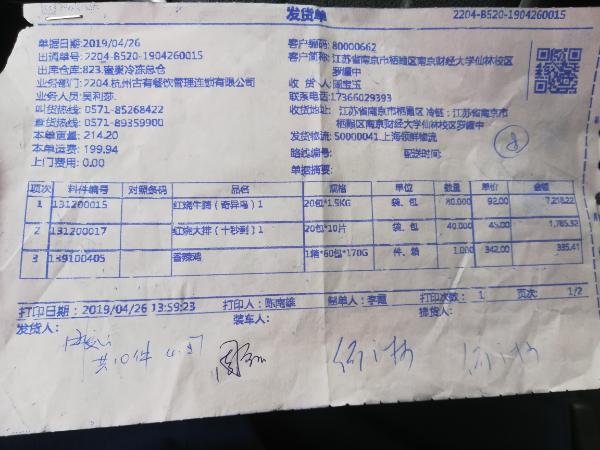 发货单
2204-B520-1904260015
单据日期:2019/04/26
出调单号: 2204-B520-1904260015
出库仓库:823.蜜聚冷冻总仓
业务部门:2204.杭州古有餐饮管理连锁有限公司
业务人员:吴利莎.
叫货热线: 0571-85268422
查货热线: 0571-89359900
本单重量: 214.20
本单运费: 199.94
上门费用: 0.00
客户编码: 80000662
客户简称: 江苏省南京市栖霞区南京财经大学仙林校区
罗耀中
收 货 人: 周宝玉
联系电话: 17366029393
收货地址: 江苏省南京市栖霞区 冷链: 江苏省南京市
栖霞区南京财经大学仙林校区罗耀中
发货物流: 50000041.上海领鲜物流
路线编号: 配送时间:
单据摘要:
项次 料件编号 对照条码 品名 规格 单位 数量 单价 金额
1 131200015 红烧牛腩（奇异鸟）1 20包*1.5KG 袋、包 80.000 92.00 7,218.22
2 131200017 红烧大排（十秒到）1 20包*10片 袋、包 40.000 45.00 1,765.32
3 139100405 香辣鸡 1箱*60包*170G 件、箱 1.000 342.00 335.41
打印日期: 2019/04/26 13:59:23 打印人: 陈南雄 制单人: 李霞 打印次数: 1 页次: 1/2
发货人: 装车人: 提货人:
共10件 4.27